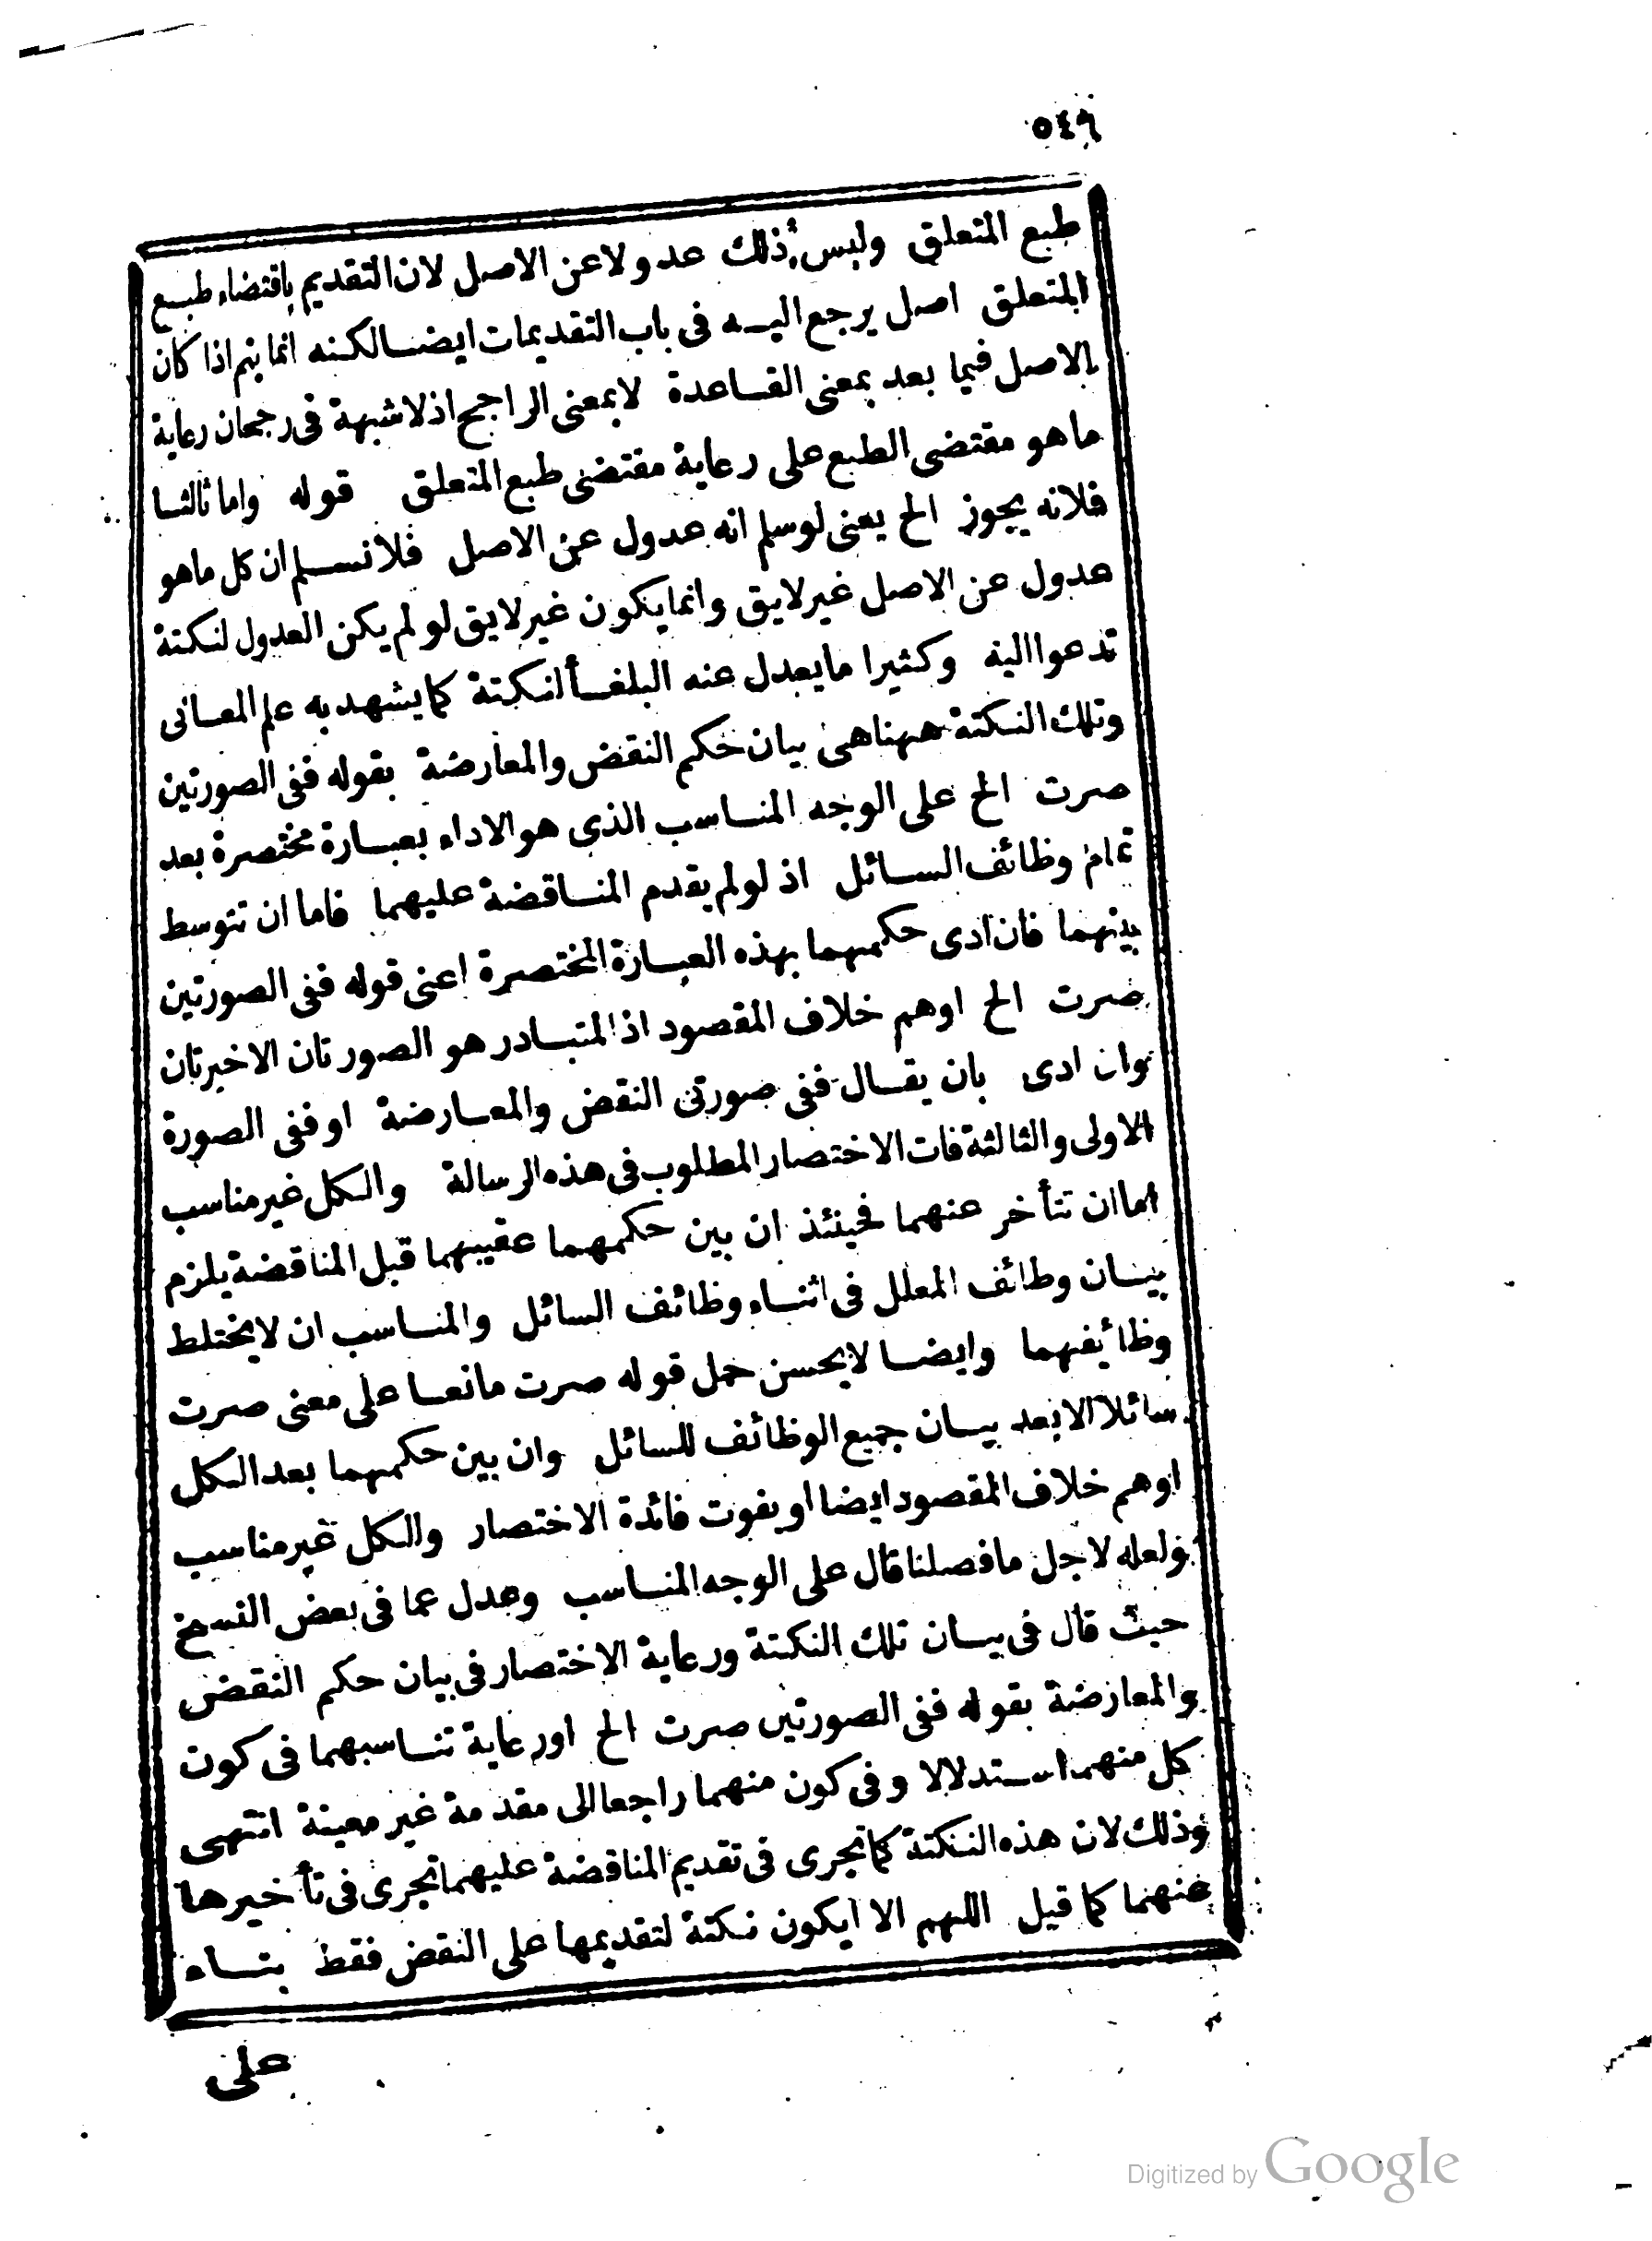 ٥٤٦
طبع المتعلق وليس ذلك عدولا عن الاصل لان التقديم باقتضاء طبع
المتعلق اصل يرجع اليه فى باب التقديمات ايضا لكنه انما يتم اذا كان
الاصل فيما بعد بمعنى القاعدة لا بمعنى الراجح اذ لا شبهة فى رجحان رعاية
ما هو مقتضى الطبع على رعاية مقتضى طبع المتعلق قوله واما ثالثا
فلانه يجوز الخ يعنى لو سلم انه عدول عن الاصل فلا نسلم ان كل ما هو
عدول عن الاصل غير لايق وانما يكون غير لايق لو لم يكن العدول لنكتة
تدعوا اليه وكثيرا ما يعدل عنه البلغأ لنكتة كما يشهد به علم المعانى
وتلك النكتة ههنا هى بيان حكم النقض والمعارضة بقوله ففى الصورتين
صرت الخ على الوجه المناسب الذى هو الاداء بعبارة مختصرة بعد
تمام وظائف السائل اذ لو لم يقدم المناقضة عليهما فاما ان تتوسط
بينهما فان ادى حكمهما بهذه العبارة المختصرة اعنى قوله ففى الصورتين
صرت الخ اوهم خلاف المقصود اذ المتبادر هو الصورتان الاخيرتان
وان ادى بان يقال ففى صورتى النقض والمعارضة او ففى الصورة
الاولى والثالثة فات الاختصار المطلوب فى هذه الرسالة والكل غير مناسب
اما ان تتأخر عنهما فحينئذ ان بين حكمهما عقيبهما قبل المناقضة يلزم
بيان وظائف المعلل فى اثناء وظائف السائل والمناسب ان لا يختلط
وظايفهما وايضا لا يحسن حمل قوله صرت مانعا على معنى صرت
سائلا الا بعد بيان جميع الوظائف للسائل وان بين حكمهما بعد الكل
اوهم خلاف المقصود ايضا او يفوت فائدة الاختصار والكل غير مناسب
ولعله لاجل ما فصلنا قال على الوجه المناسب وعدل عما فى بعض النسخ
حيث قال فى بيان تلك النكتة ورعاية الاختصار فى بيان حكم النقض
والمعارضة بقوله ففى الصورتين صرت الخ او رعاية تناسبهما فى كون
كل منهما استدلالا وفى كون منهما راجعا الى مقدمة غير معينة انتهى
وذلك لان هذه النكتة كما تجرى فى تقديم المناقضة عليهما تجرى فى تأخيرها
عنهما كما قيل اللهم الا ان يكون نكتة لتقديمها على النقض فقط بناء
على
Digitized by Google